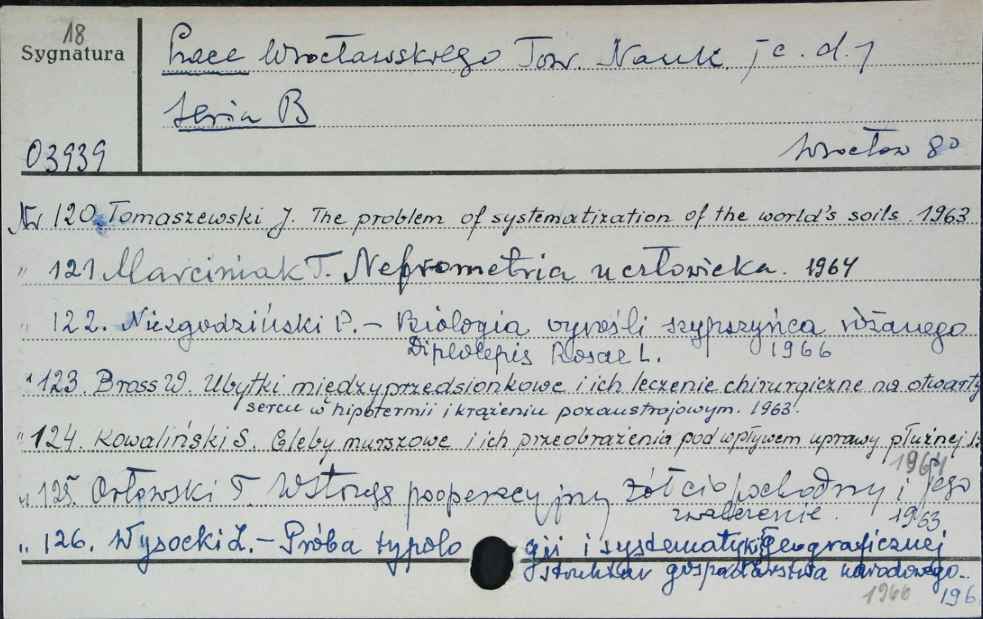 18
Sygnatura
Prace Wrocławskiego Tow. Nauk. /c. d./
Seria B
03939
Wrocław 8°
Nr 120. Tomaszewski J. The problem of systematization of the world's soils. 1963
" 121 Marciniak T. Nefrometria u człowieka. 1964
" 122. Niezgodziński P. – Biologia wyrośli szypszyńca różanego
Diplolepis Rosae L. 1966
" 123. Bross W. Ubytki międzyprzedsionkowe i ich leczenie chirurgiczne na otwarty
sercu w hipotermii i krążeniu pozaustrojowym. 1963.
" 124. Kowaliński S. Gleby murszowe i ich przeobrażenia pod wpływem uprawy płużnej
1964
" 125. Orłowski T Wstrząs pooperacyjny żółciopochodny i jego
zwalczenie. 1963
" 126. Wysocki Z. – Próba typologii i systematyki geograficznej
struktur gospodarstwa narodowego.
1966 196